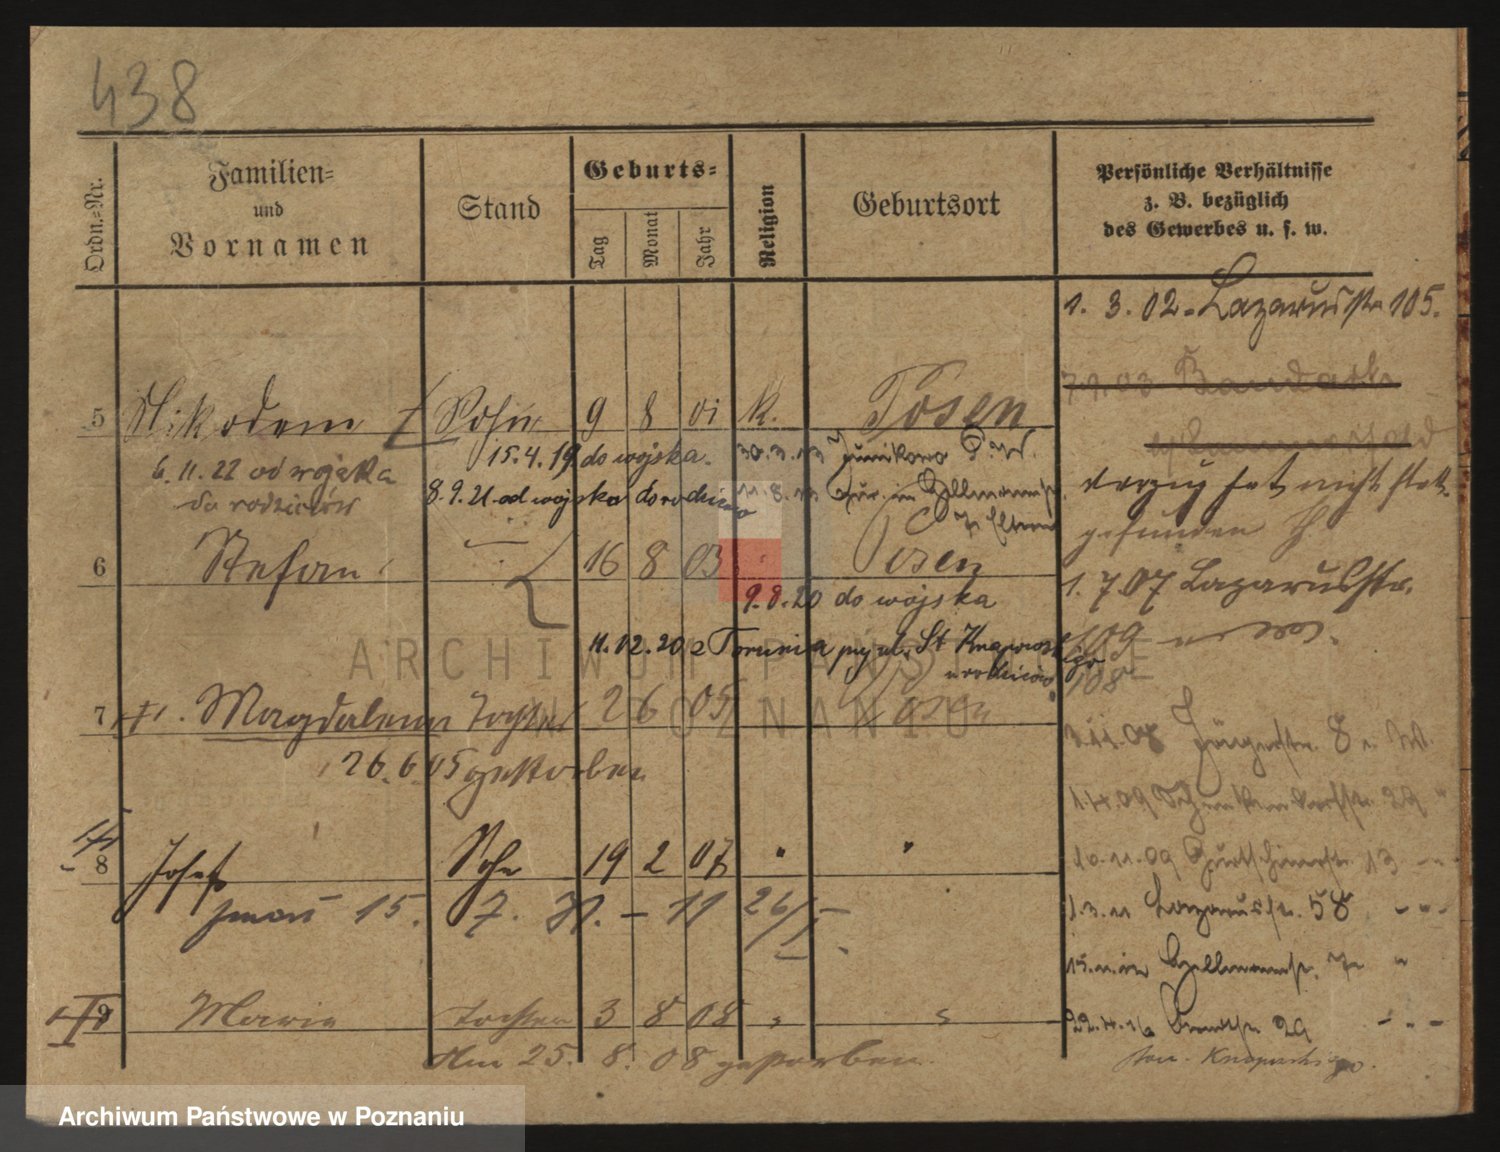 438
Ordn.-Nr.
Familien-
und
Vornamen
Stand
Geburts-
Tag
Monat
Jahr
Religion
Geburtsort
Persönliche Verhältnisse
z. B. bezüglich
des Gewerbes u. s. w.
1. 3. 02. Lazarusstr 105.
5 Nikodem Sohn 9 8 01 K. Posen
6.11.22 od wojska
do rodziców
15.4.19 do wojska.
8.9.21 od wojska do rodziców
30.3.13 Junikowo P. W.
11.8.13 zur. Gellmannst.
z. Eltern
verzug hat nicht statt
gefunden
6 Stefan 16 8 03 Posen
1. 7 07 Lazarusstr.
9.8.20 do wojska
11.12.20 z Torunia przy ul. St Knapowskiego
u rodziców
109
108
7 Magdalena Tochter 2 6 05 Posen
26.6.05 gestorben
3.11.08 Jägerstr. 8 W.
1.4.09 29 "
8 Josef Sohn 19 2 07 " "
15. 7. – 11 26/
10.11.09 13 - " -
1.3.11 Lazarusstr. 58 - " -
15.11.12 Gellmannst. "
9 Marie Tochter 3 8 08 " "
Am 25. 8. 08 gestorben.
22.4.16 29 - " -
Knapowskiego.
ARCHIWUM PAŃSTWOWE
W POZNANIU
Archiwum Państwowe w Poznaniu